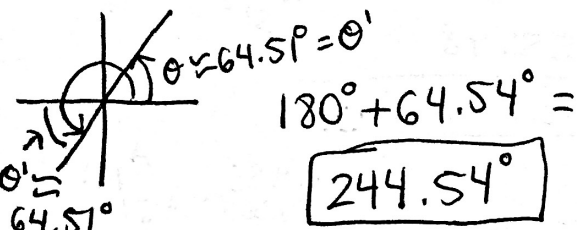 θ ≈ 64.51° = θ'
180° + 64.54° =
244.54°
θ' ≈
64.51°